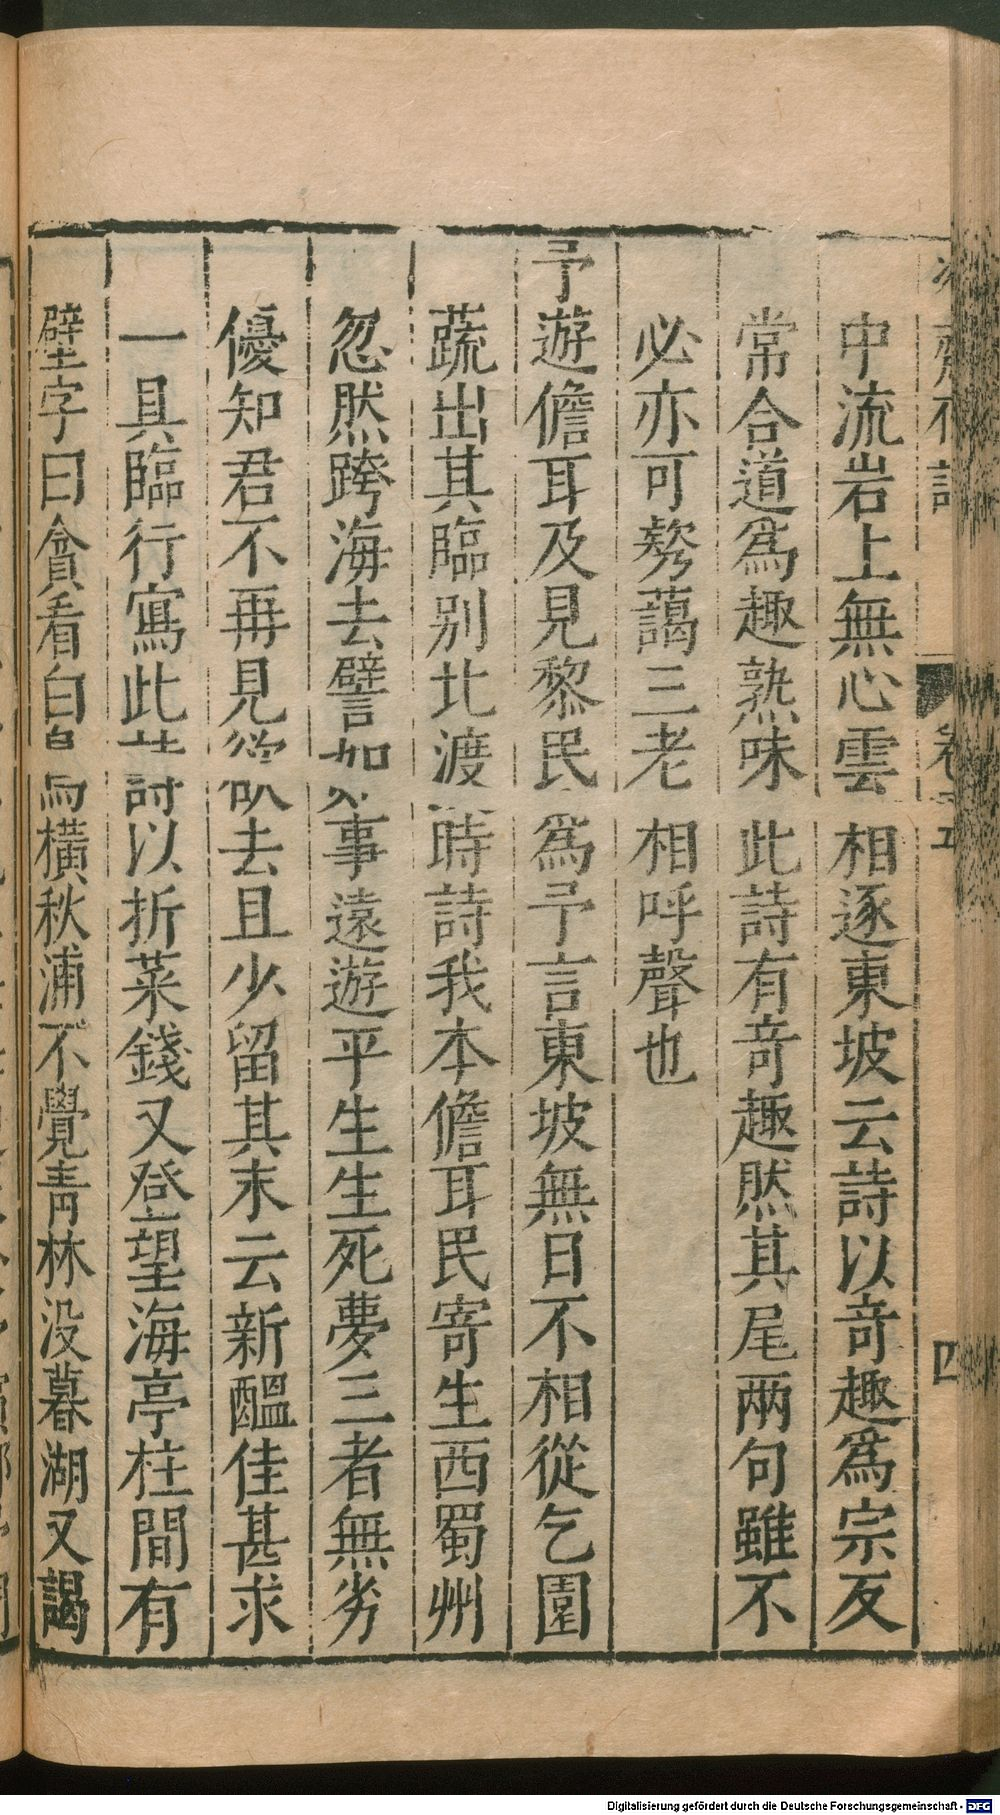 中流岩上無心雲相逐東坡云詩以竒趣爲宗反
常合道爲趣熟味此詩有竒趣然其尾兩句雖不
必亦可欸藹三老相呼聲也
予遊儋耳及見黎民爲予言東坡無日不相從乞園
蔬出其臨别北渡時詩我本儋耳民寄生西蜀州
忽然跨海去譬如事遠遊平生生死夢三者無劣
優知君不再見欲去且少留其末云新醖佳甚求
一具臨行寫此詩以折菜錢又登望海亭柱間有
擘字曰貪看白鳥橫秋浦不覺青林没暮湖又謁
卷五
四
Digitalisierung gefördert durch die Deutsche Forschungsgemeinschaft - DFG